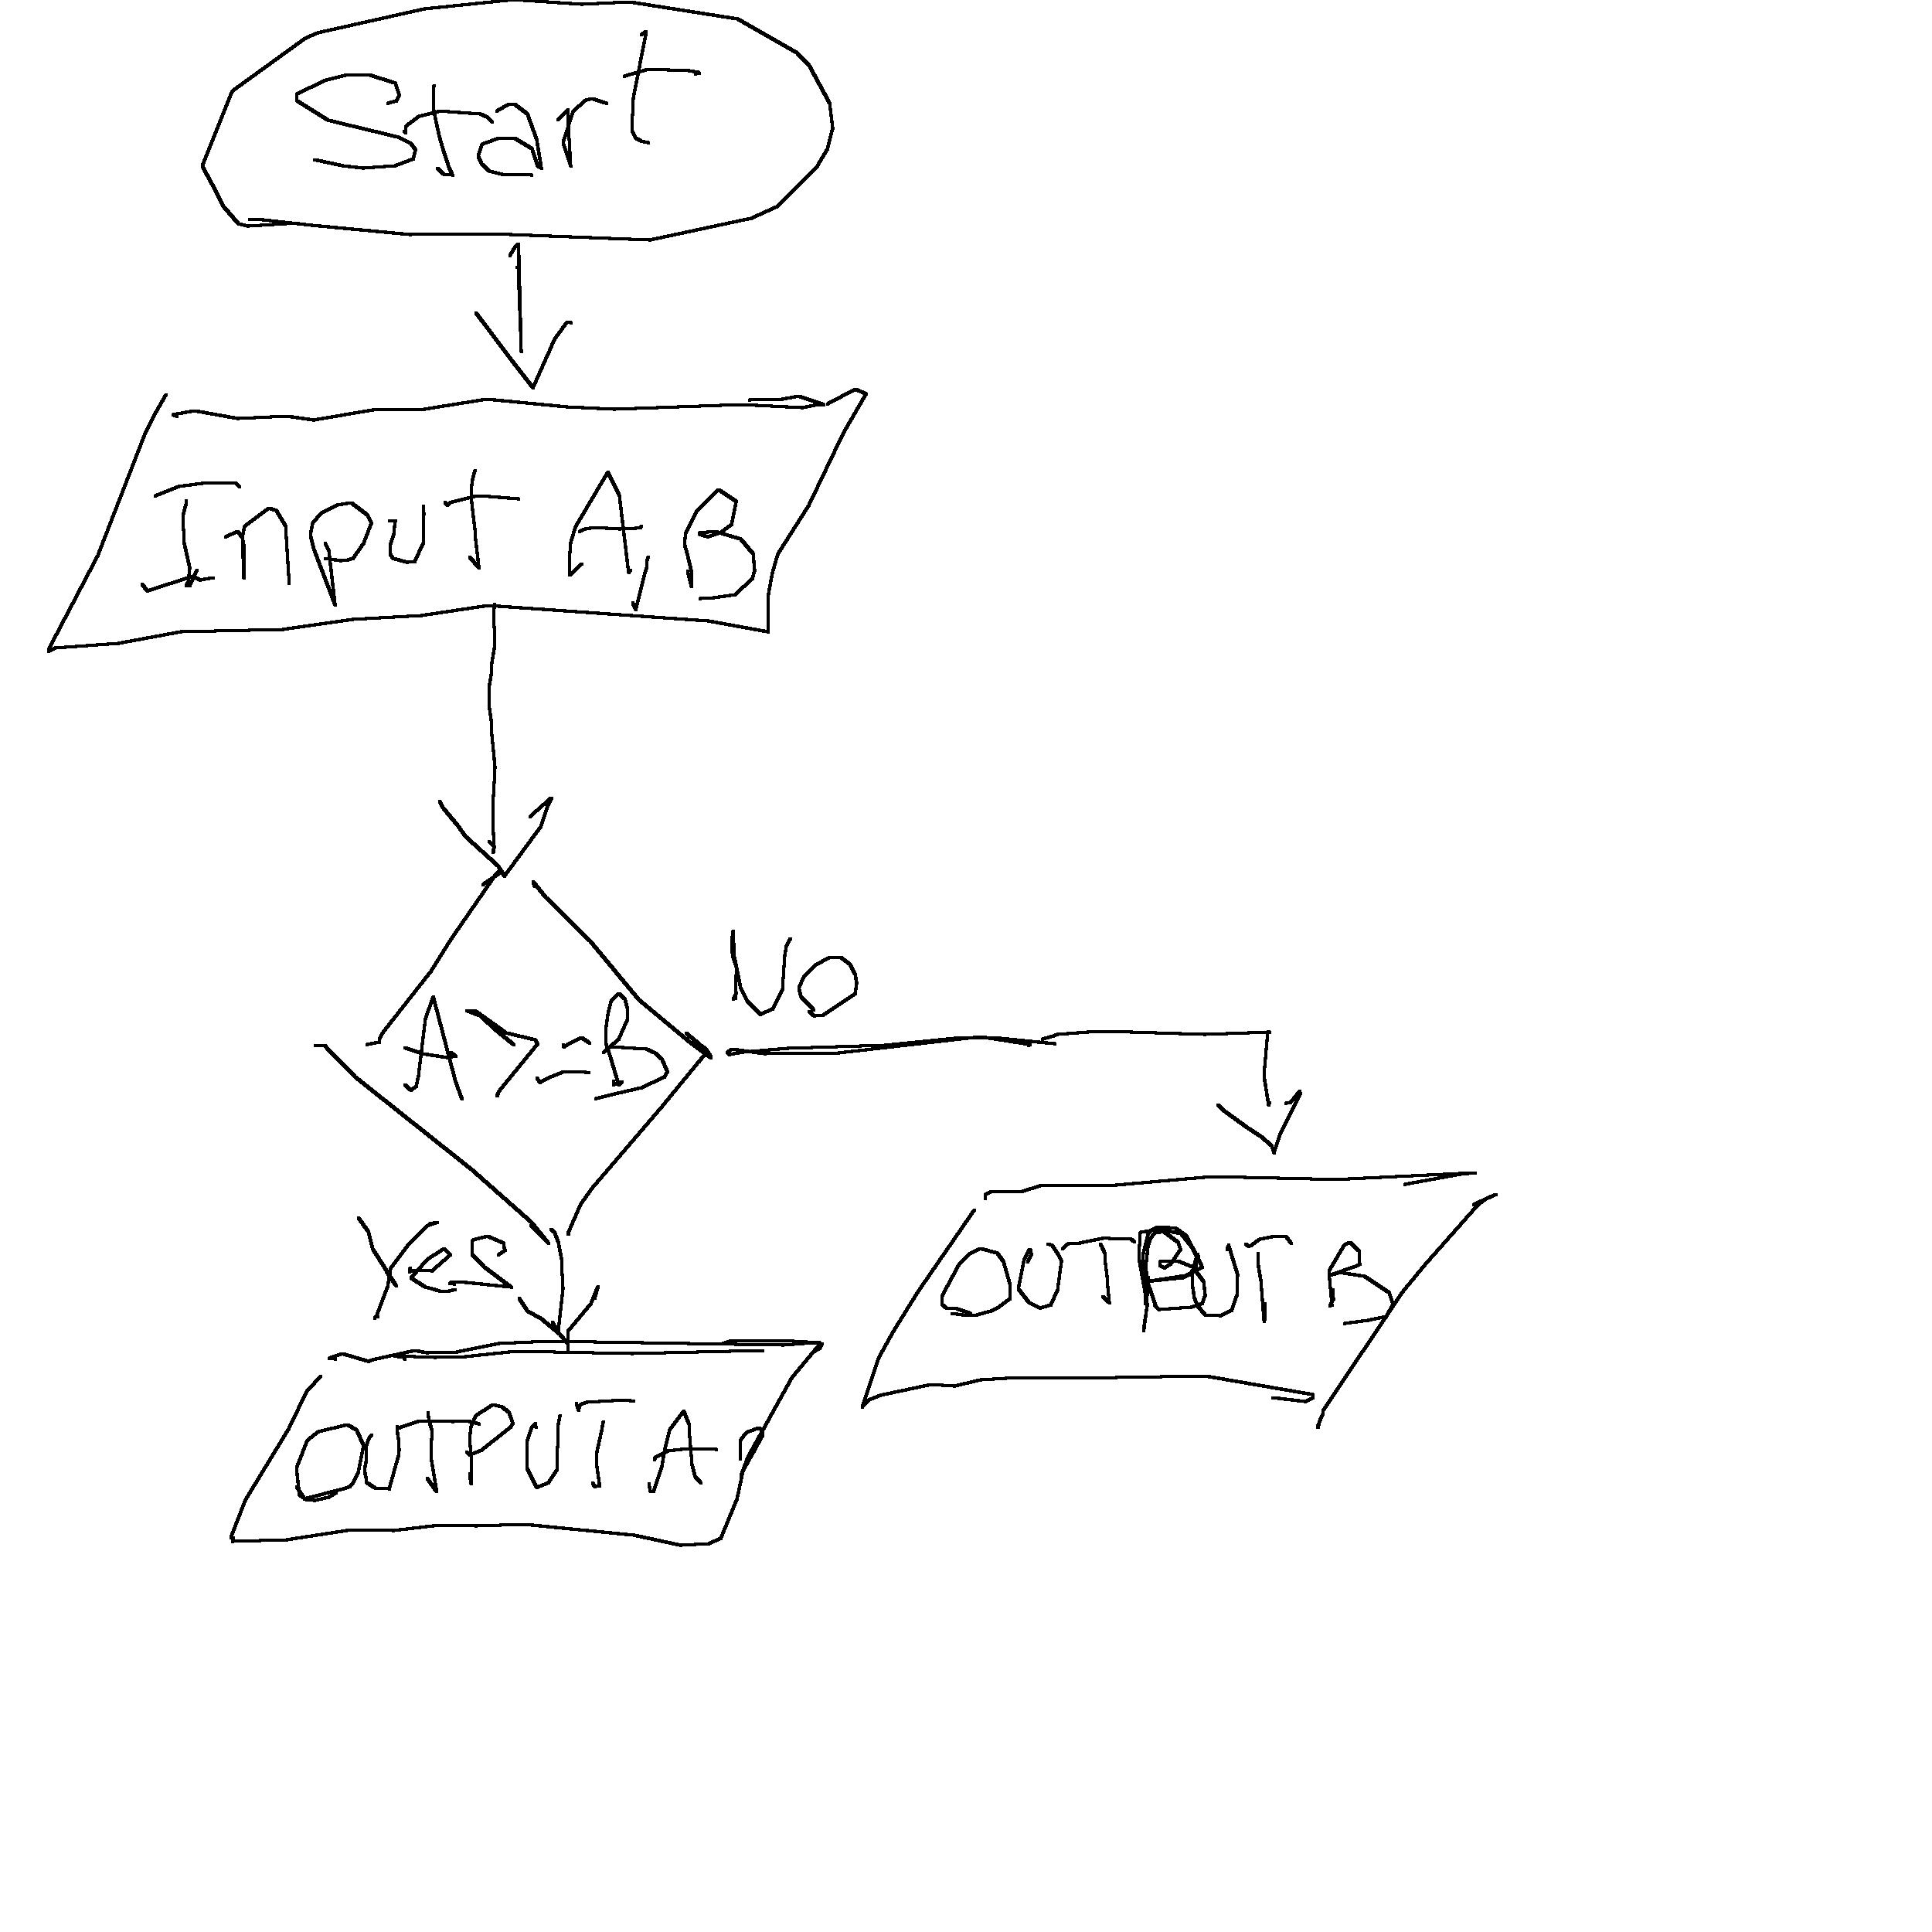 Start
Input A, B
A >= B
No
Yes
OUTPUT B
OUTPUT A